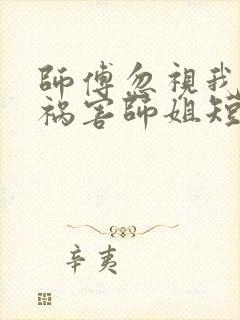 師傅忽視我
禍害師姐短
辛夷